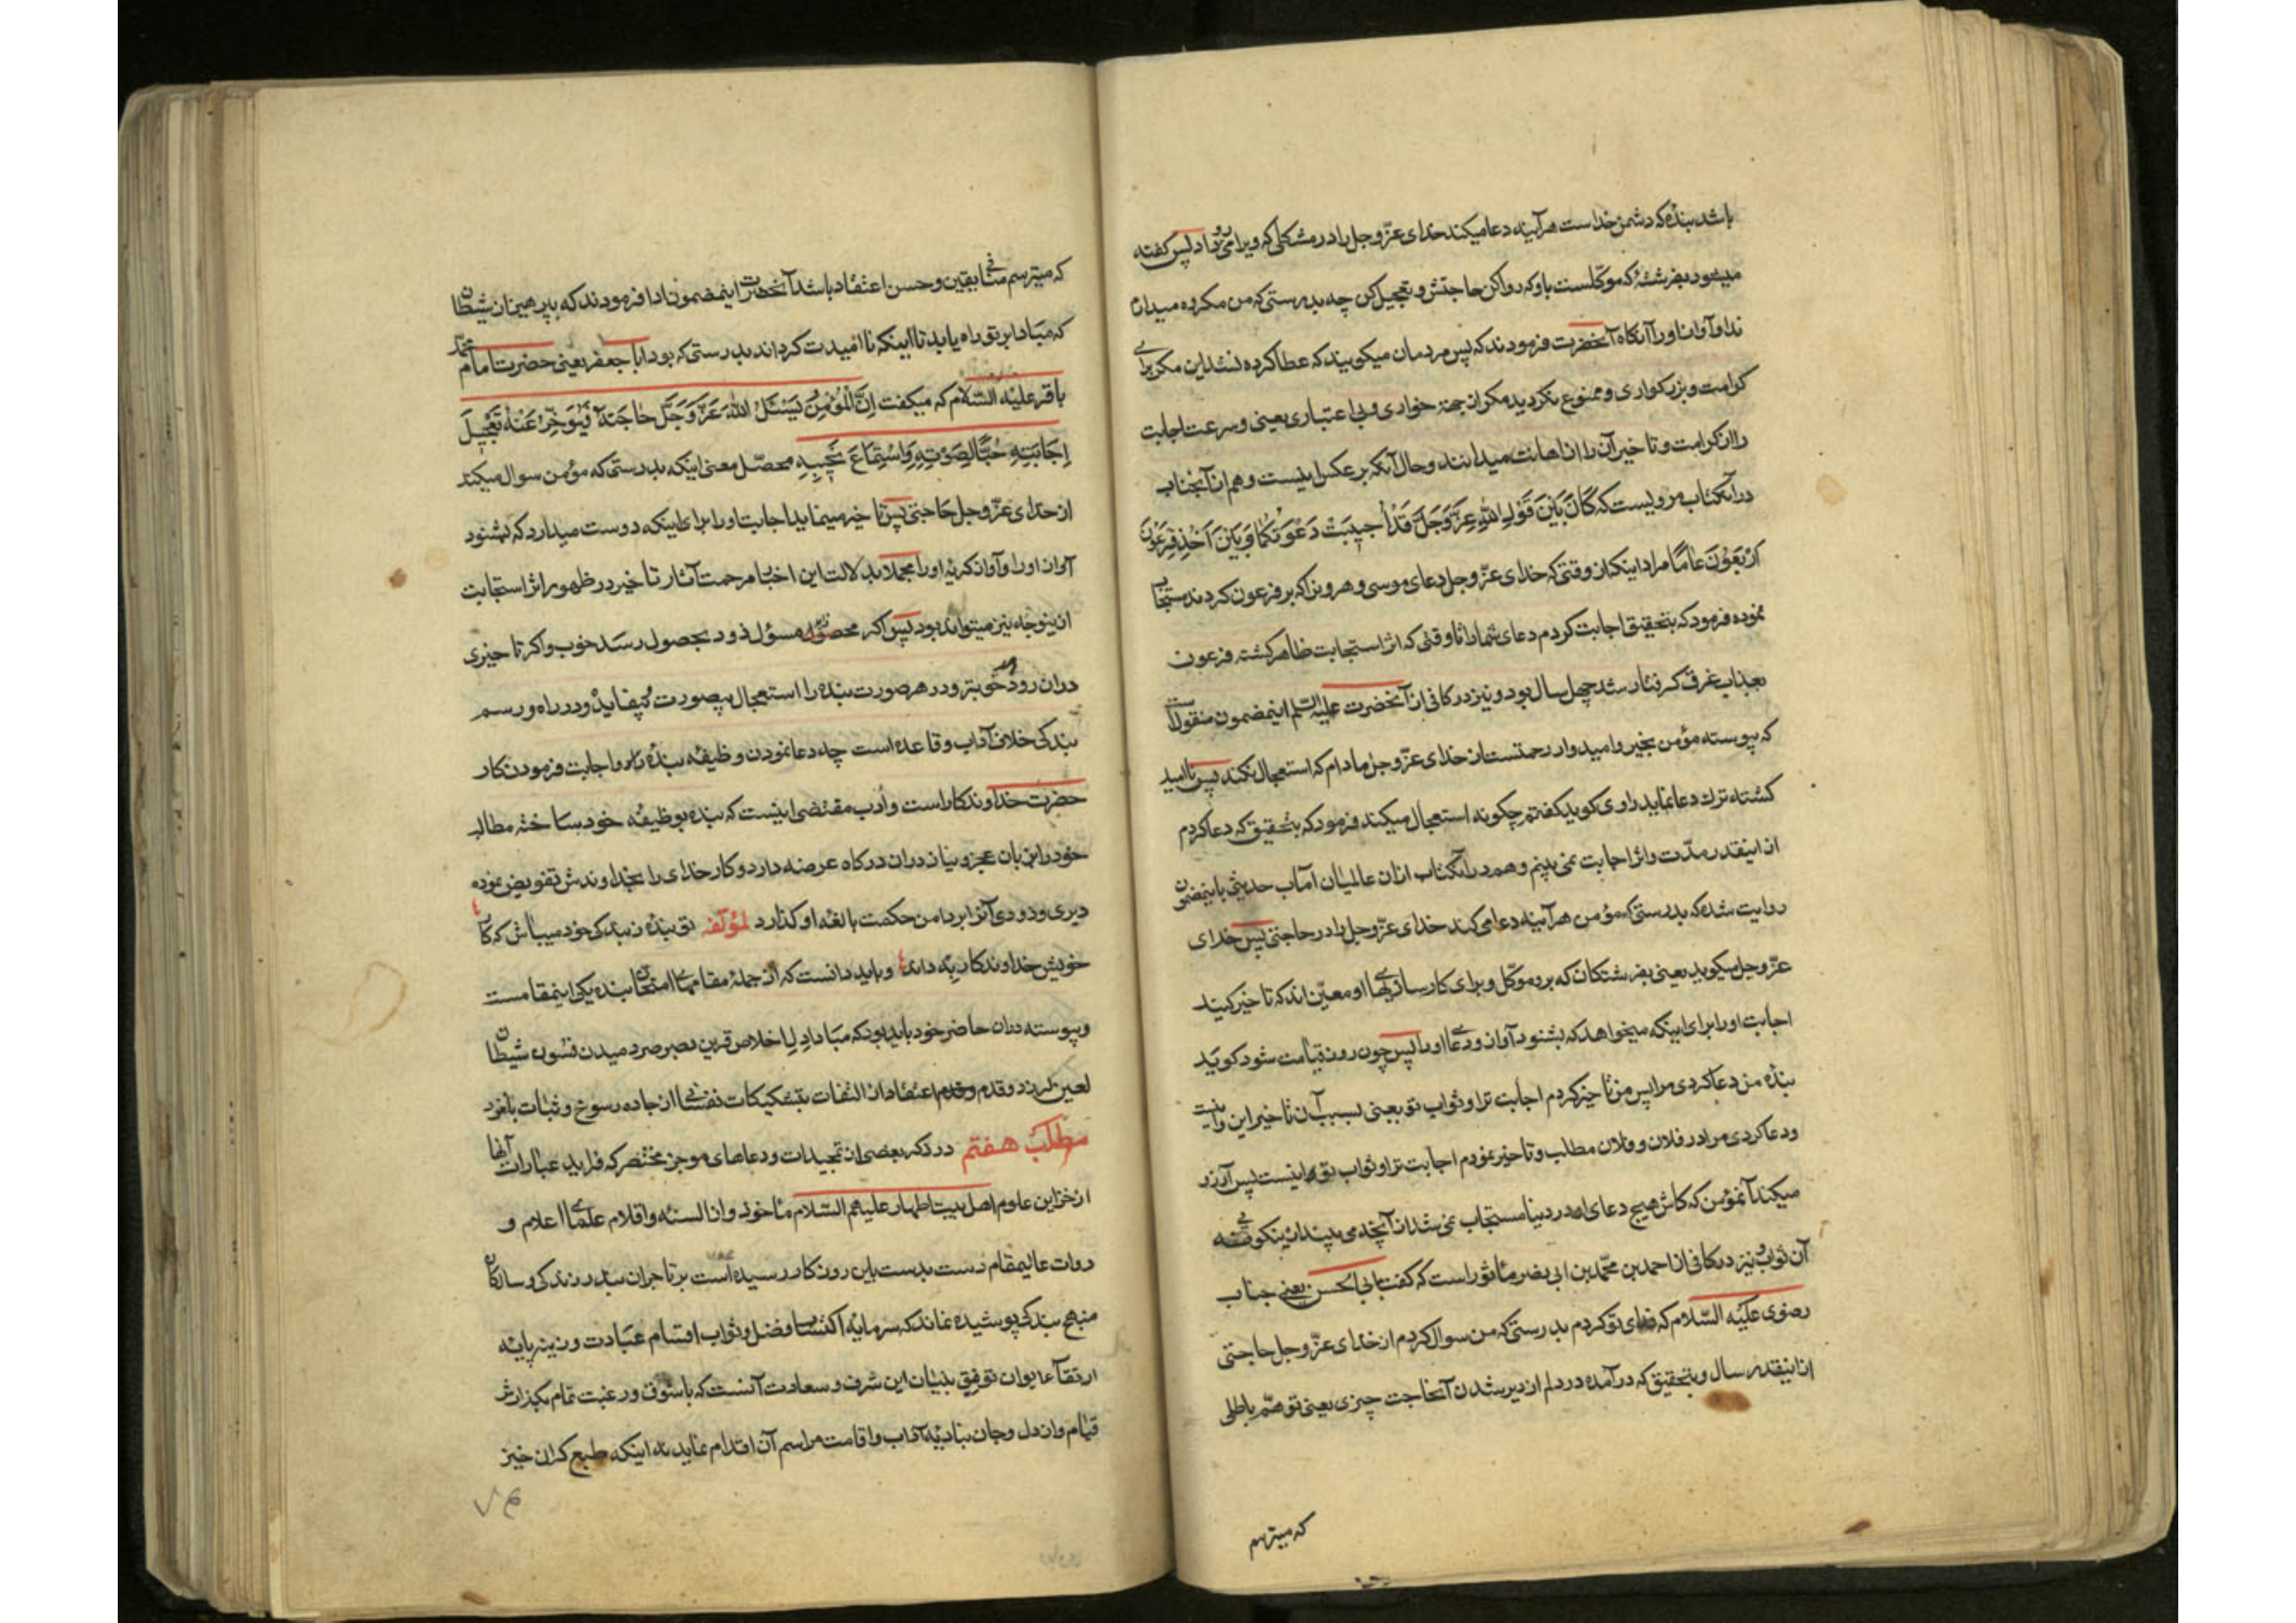 باشد بنده که دشمن خداست هرآینه دعا میکند خدای عزّ وجل را در مشکلی که ویرا می رو داد پس گفته
میشود بفرشتهٔ که موکّلست باو که روا کن حاجتش و تعجیل کن چه بدرستی که من مکروه میدارم
ندا و آواز اورا آنکاه آنحضرت فرمودند که پس مردمان میکویند که عطا کرده نشد این مکر برای
کرامت و بزرکواری و ممنوع نکردید مکر از جهة خواری و بی اعتباری یعنی و سرعت اجابت
را از کرامت و تاخیر آن را از اهانت میدانند و حال آنکه بر عکس اینست و هم از آنجناب
در آنکتاب مرویست که کَانَ بَیْنَ قَوْلِ اللهِ عَزَّ وَجَلَّ قَدْ اُجیبَتْ دَعْوَتُکُمَا وَ بَیْنَ اَخْذِ فِرْعَوْنَ
اَرْبَعُوْنَ عَامًا مراد اینکه از وقتی که خدای عزّ وجل دعای موسی و هرون را که بر فرعون کردند مستجاب
نموده فرمود که بتحقیق اجابت کردم دعای شما را تا وقتی که اثر استجابت ظاهر کشته فرعون
بعذاب غرق کرفتار شد چهل سال بود و نیز در کافی از آنحضرت علیه السلم اینمضمون منقول است
که پیوسته مؤمن بخیر و امیدوار رحمتست از خدای عزّ وجل مادام که استعجال نکند پس ناامید
کشته ترک دعا نماید راوی کوید کفتم چکونه استعجال میکند فرمود که بتحقیق که دعا کردم
از اینقدر مدّت و اثر اجابت نمی بینم و هم در آنکتاب از ان عالمیان مآب حدیثی باینمضمون
روایت شده که بدرستی که مؤمن هرآینه دعا می کند خدای عزّ وجل را در حاجتی پس خدای
عزّ وجل میکوید یعنی بفرشتکان که برو موکّل و برای کارسازیهای او معیّن اند که تاخیر کنید
اجابت او را برای اینکه میخواهد که بشنود آواز و دعای اورا پس چون روز قیامت شود کوید
بندهٔ من دعا کردی مرا پس من تاخیر کردم اجابت ترا و ثواب تو یعنی بسبب آن تاخیر این و اینست
و دعا کردی مرا در فلان و فلان مطالب و تاخیر نمودم اجابت ترا و ثواب تو اینست پس آرزو
میکند آنمؤمن که کاش هیچ دعای او در دنیا مستجاب نمی شد از آنچه می بیند از نیکوئی
آن ثواب و نیز در کافی از احمد بن محمّد بن ابی نصر ماثور است که کفت بابی الحسن یعنی جناب
رضوی علیه السّلام که فدای تو کردم بدرستی که من سوال کردم از خدای عزّ وجل حاجتی
از اینقدر سال و بتحقیق که در آمده در دلم از دیر شدن آنحاجت چیزی یعنی توهّم باطلی
که میترسم
که میترسم منافی یقین و حسن اعتقاد باشد آنحضرت اینمضمون ادا فرمودند که بپرهیز از شیطان
که مبادا بر تو راه یابد تا اینکه نا امیدت کرداند بدرستی که بود ابا جعفر یعنی حضرت امام محمّد
باقر علیه السّلام که میکفت اِنَّ الْمُؤْمِنَ یَسْئَلُ اللهَ عَزَّ وَجَلَّ حَاجَتَهُ فَیُؤَخِّرُ عَنْهُ تَعْجِیلَ
اِجَابَتِهِ حُبًّا لِصَوْتِهِ وَاسْتِمَاعَ نَحِیبِهِ محصّل معنی اینکه بدرستی که مؤمن سوال میکند
از خدای عزّ وجل حاجتی پس تا خیر مینماید اجابت اورا برای اینکه دوست میدارد که بشنود
آواز اورا و آواز کریهٔ اورا مجملا بدلالت این اخبار مرحمت آثار تاخیر در ظهور اثر استجابت
از ینوجه نیز میتواند بود پس اکر مسؤل زود بحصول رسد خوب و اکر تاخیری
در ان رود بهتر و در هر صورت بنده را استعجال بیصورت و در راه و رسم
بندکی خلاف آداب و قاعده است چه دعا نمودن وظیفهٔ بندهٔ و اجابت فرمودن کار
حضرت خداوندکار است و ادب مقتضی اینست که بنده بوظیفه خود ساخته مطالب
خود را بزبان عجز و نیاز دران درکاه عرضه دارد و کار خدای را بخداوندش تفویض نموده
دیری و زودی آنرا بدامن حکمت بالغهٔ او کذارد لمؤلفه تو بنده ز بندکی خود میباش که کار
خویش خداوندکار به داند و باید دانست که از جملهٔ مقامهای امتحان بنده یکی اینمقامست
و پیوسته دران حاضر خود باید بود که مبادا دل اخلاص قرین بصرصر دمیدن فسون شیطان
لعین لرزد و قدم اعتقاد از التفات بتشکیکات نفسانی از جاده رسوخ و ثبات بلغزد
مطلب هفتم در ذکر بعضی از تمجیدات و دعاهای موجز مختصر که فراید عبارات آنها
از خزاین علوم اهل بیت اطهار علیهم السّلام ماخوذ و از السنه و اقلام علمای اعلام و
روات عالیمقام دست بدست باین روزکار رسیده است بر تاجران بندر زندکی و سالکان
منهج بندکی پوشیده نماند که سرمایهٔ اکتساب فضل و ثواب اقسام عبادت و زینه پایهٔ
ارتقآ بایوان توفیق بنیان این شرف و سعادت آنست که با شوق و رغبت تمام بکذارش
قیام و از دل و جان بتادیهٔ آداب و اقامت مراسم آن اقدام نماید نه اینکه طبع کران خیز